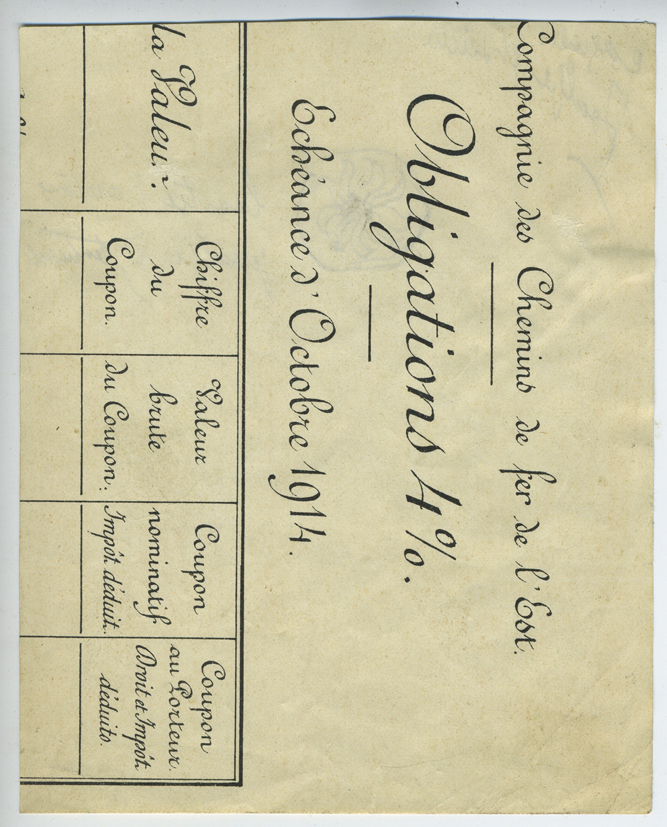 Compagnie des Chemins de fer de l'Est.
Obligations 4%.
Echéance d'Octobre 1914.
la Valeur.
Chiffre
du
Coupon.
Valeur
brute
du Coupon.
Coupon
nominatif
Impôt déduit.
Coupon
au Porteur.
Droit et Impôt
déduits.